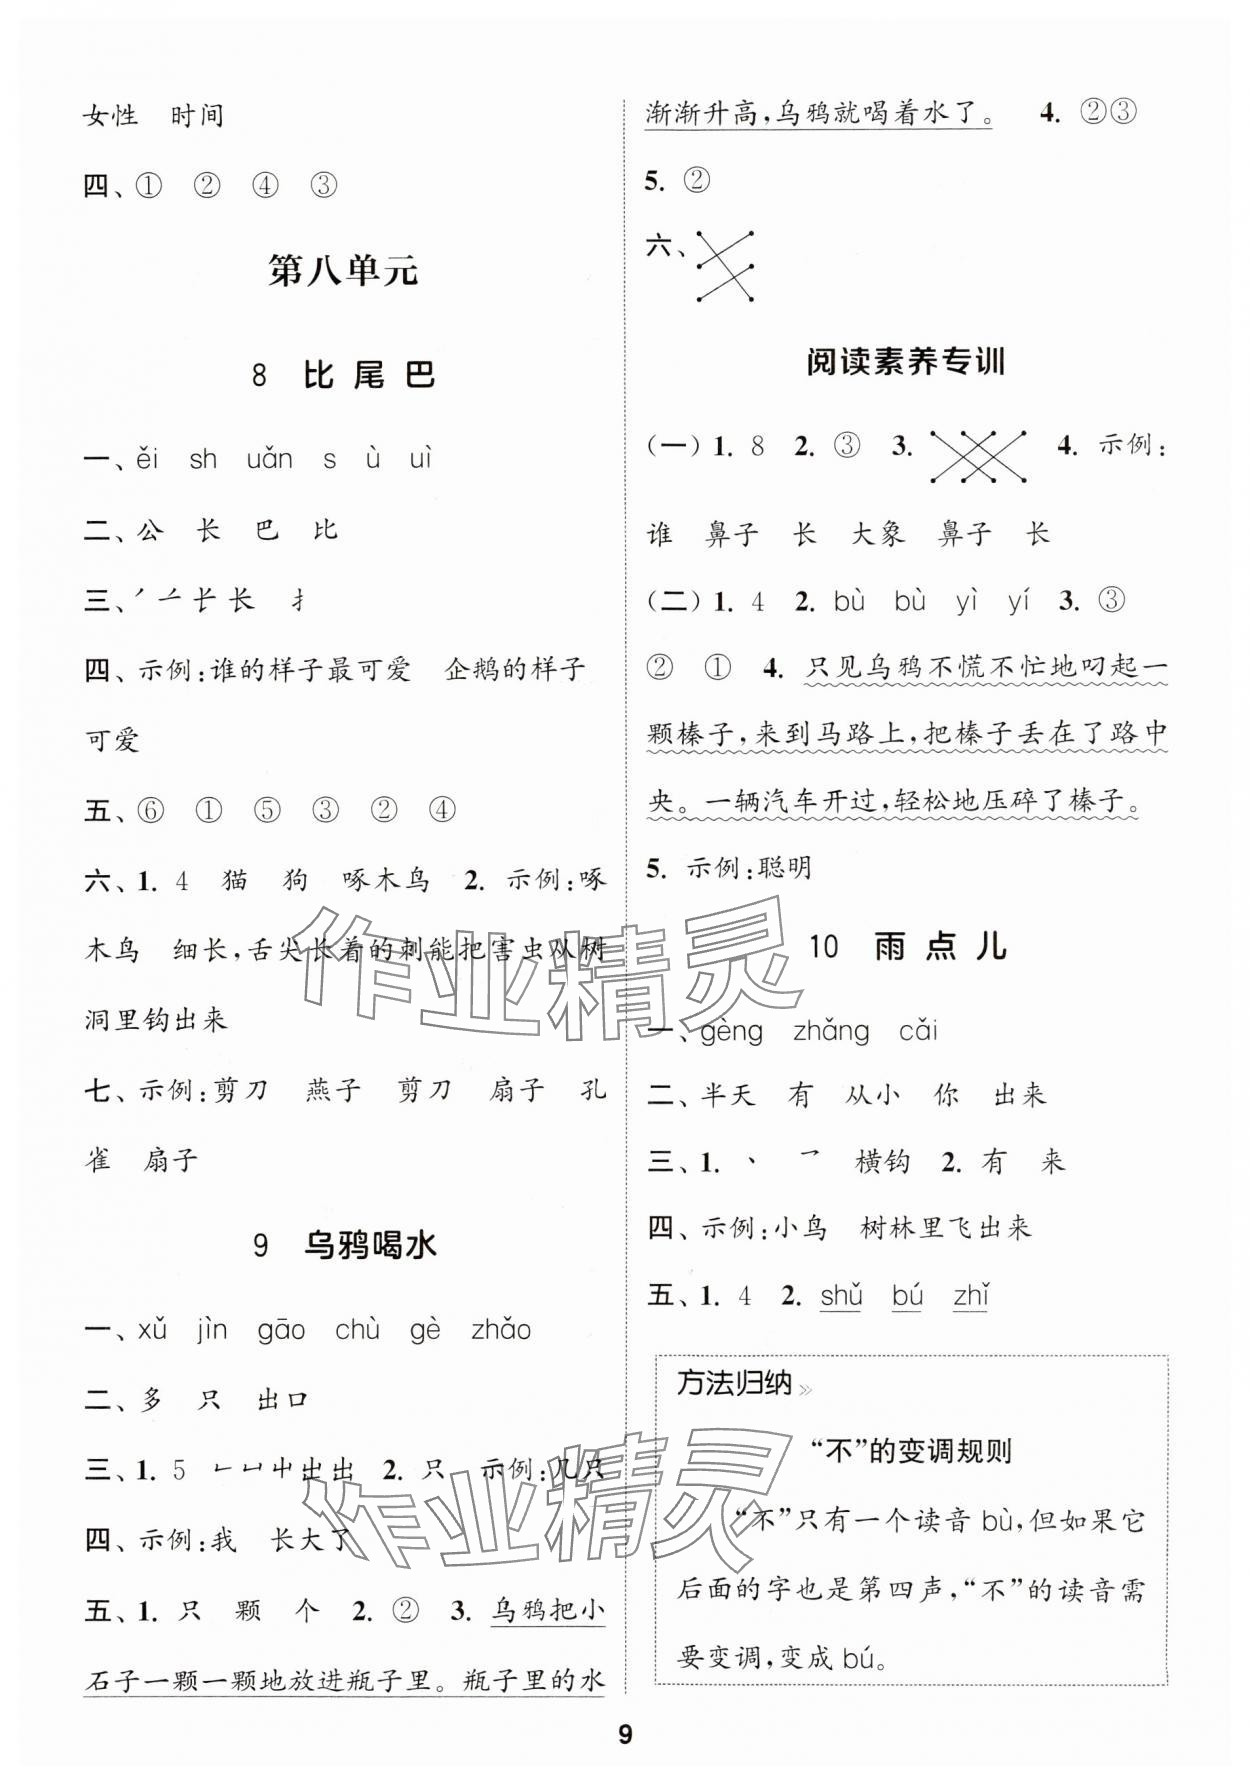 女性 时间
四、① ② ④ ③
第八单元
8 比尾巴
一、ěi sh uǎn s ù uì
二、公 长 巴 比
三、㇒ 𠂉 长 扌
四、示例:谁的样子最可爱 企鹅的样子
可爱
五、⑥ ① ⑤ ③ ② ④
六、1. 4 猫 狗 啄木鸟 2. 示例:啄
木鸟 细长,舌尖长着的刺能把害虫从树
洞里钩出来
七、示例:剪刀 燕子 剪刀 扇子 孔
雀 扇子
9 乌鸦喝水
一、xǔ jìn gāo chù gè zhǎo
二、多 只 出口
三、1. 5 出 出 2. 只 示例:几只
四、示例:我 长大了
五、1. 只 颗 个 2. ② 3. 乌鸦把小
石子一颗一颗地放进瓶子里。瓶子里的水
渐渐升高,乌鸦就喝着水了。 4. ②③
5. ②
六、
阅读素养专训
(一)1. 8 2. ③ 3. 4. 示例:
谁 鼻子 长 大象 鼻子 长
(二)1. 4 2. bù bù yì yí 3. ③
② ① 4. 只见乌鸦不慌不忙地叼起一
颗榛子,来到马路上,把榛子丢在了路中
央。一辆汽车开过,轻松地压碎了榛子。
5. 示例:聪明
10 雨点儿
一、gèng zhǎng cǎi
二、半天 有 从小 你 出来
三、1. 丶 乛 横钩 2. 有 来
四、示例:小鸟 树林里飞出来
五、1. 4 2. shǔ bú zhǐ
方法归纳
“不”的变调规则
“不”只有一个读音 bù,但如果它
后面的字也是第四声,“不”的读音需
要变调,变成 bú。
作业精灵
作业精灵
9